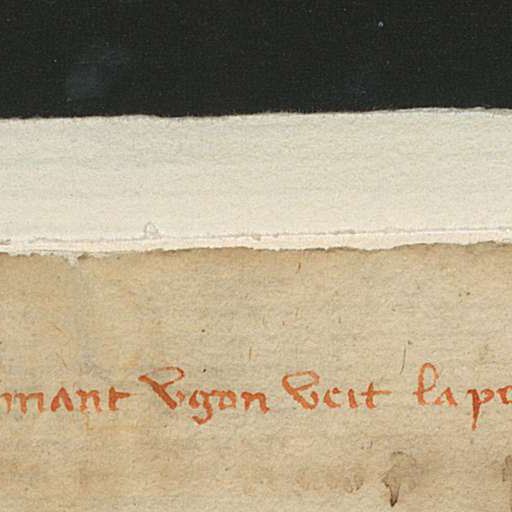 mant vgon veit la po